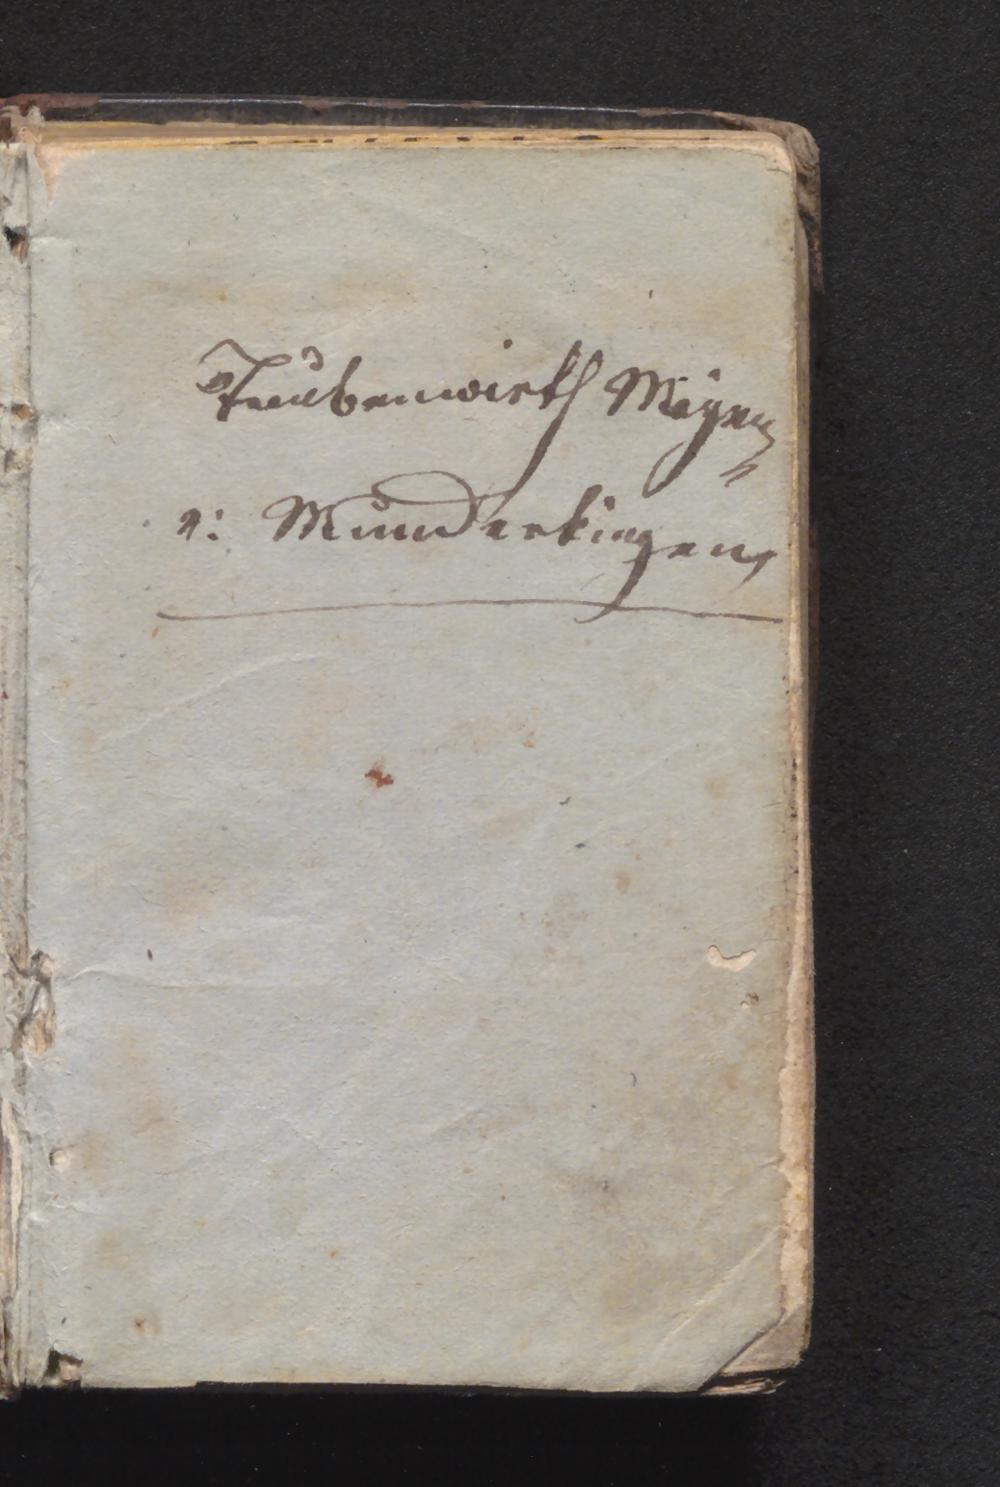 Traubenwirth Mayer
v: Munderkingen